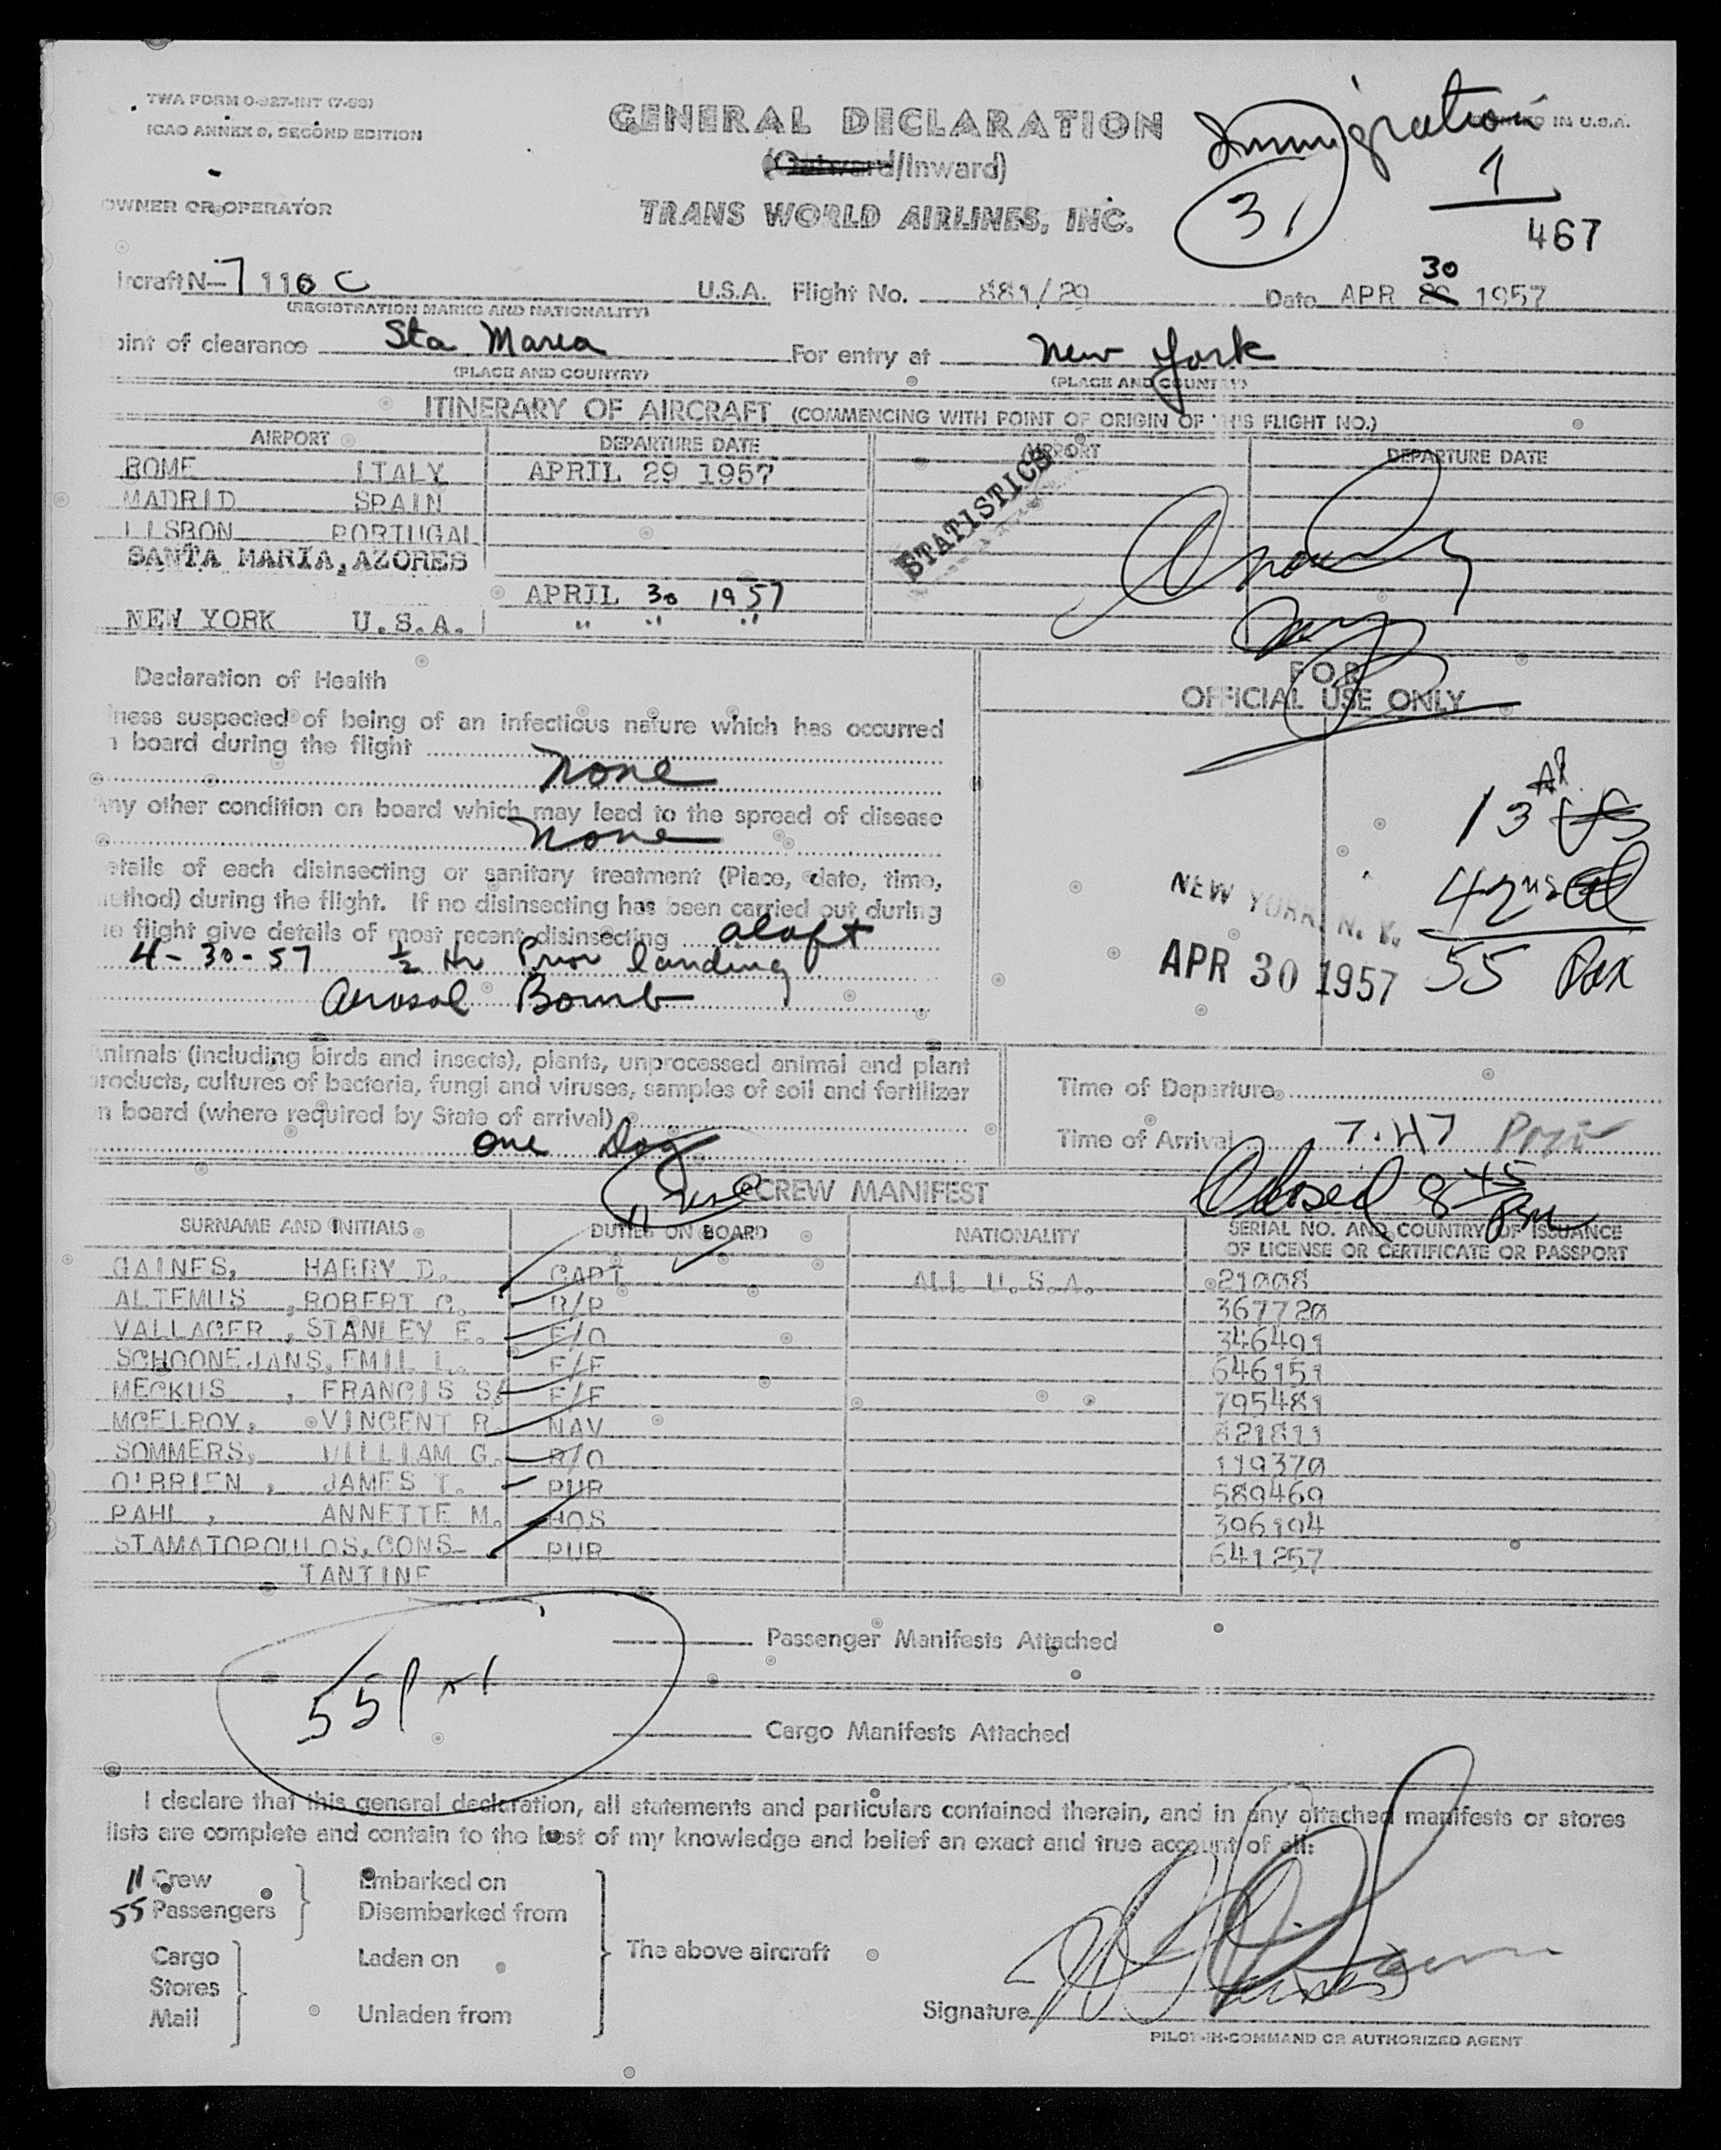 TWA FORM O-927-INT (7-53)
ICAO ANNEX 9, SECOND EDITION
GENERAL DECLARATION
(Outward/Inward)
Immigration
IN U.S.A.
31
1
467
OWNER OR OPERATOR
TRANS WORLD AIRLINES, INC.
ircraft N-7116 C U.S.A. Flight No. 881/29 Date APR 30 1957
(REGISTRATION MARKS AND NATIONALITY)
oint of clearance Sta Maria For entry at New York
(PLACE AND COUNTRY) (PLACE AND COUNTRY)
ITINERARY OF AIRCRAFT (COMMENCING WITH POINT OF ORIGIN OF THIS FLIGHT NO.)
AIRPORT DEPARTURE DATE AIRPORT DEPARTURE DATE
ROME ITALY APRIL 29 1957
MADRID SPAIN
LISBON PORTUGAL
SANTA MARIA, AZORES
STATISTICS
APRIL 30 1957
NEW YORK U.S.A. " " "
Declaration of Health
FOR
OFFICIAL USE ONLY
lness suspected of being of an infectious nature which has occurred
n board during the flight
None
Any other condition on board which may lead to the spread of disease
None
etails of each disinsecting or sanitary treatment (Place, date, time,
ethod) during the flight. If no disinsecting has been carried out during
he flight give details of most recent disinsecting aloft
4-30-57 ½ Hr Prior landing
Aerosol Bomb
13
42
55 Pax
NEW YORK, N. Y.
APR 30 1957
Animals (including birds and insects), plants, unprocessed animal and plant
products, cultures of bacteria, fungi and viruses, samples of soil and fertilizer
n board (where required by State of arrival)
one Dog
Time of Departure
Time of Arrival 7:47 PM
Closed 8 45 PM
CREW MANIFEST
SURNAME AND INITIALS DUTIES ON BOARD NATIONALITY SERIAL NO. AND COUNTRY OF ISSUANCE
OF LICENSE OR CERTIFICATE OR PASSPORT
GAINES, HARRY D. CAPT ALL U.S.A. 21008
ALTEMUS , ROBERT C. R/P 367720
VALLAGER , STANLEY E. F/O 346491
SCHOONEJANS, EMIL L. F/E 646151
MECKUS , FRANCIS S. F/E 795481
MCELROY, VINCENT R. NAV 821811
SOMMERS, WILLIAM G. R/O 119370
O'BRIEN , JAMES T. PUR 589469
PAHL , ANNETTE M. HOS 396194
STAMATOPOULOS, CONS- PUR 641257
TANTINE
Passenger Manifests Attached
55
Cargo Manifests Attached
I declare that this general declaration, all statements and particulars contained therein, and in any attached manifests or stores
lists are complete and contain to the best of my knowledge and belief an exact and true account of all:
11 Crew Embarked on
55 Passengers Disembarked from
The above aircraft
Cargo Laden on
Stores
Mail Unladen from
Signature
PILOT-IN-COMMAND OR AUTHORIZED AGENT